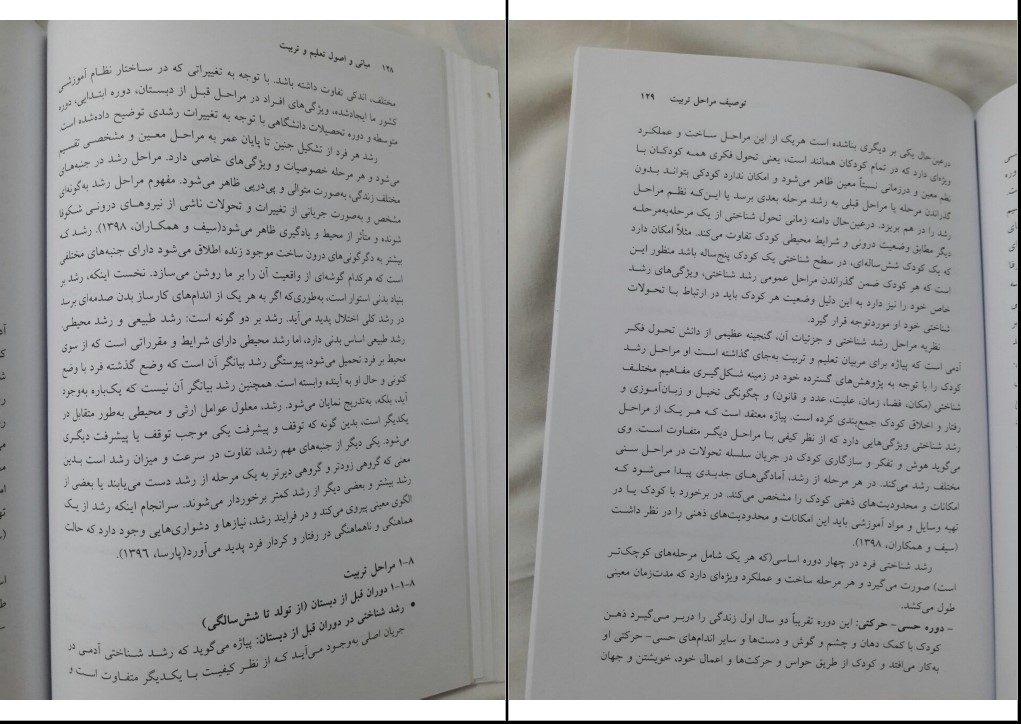 ۱۲۸ مبانی و اصول تعلیم و تربیت
مختلف، اندکی تفاوت داشته باشد. با توجه به تغییراتی که در ساختار نظام آموزشی
کشور ما ایجادشده، ویژگی‌های افراد در مراحل قبل از دبستان، دوره ابتدایی، دوره
متوسطه و دوره تحصیلات دانشگاهی با توجه به تغییرات رشدی توضیح داده‌شده است.
رشد هر فرد از تشکیل جنین تا پایان عمر به مراحل معین و مشخصی تقسیم
می‌شود و هر مرحله خصوصیات و ویژگی‌های خاصی دارد. مراحل رشد در جنبه‌های
مختلف زندگی، به‌صورت متوالی و پی‌درپی ظاهر می‌شود. مفهوم مراحل رشد به‌گونه‌ای
مشخص و به‌صورت جریانی از تغییرات و تحولات ناشی از نیروهای درونی شکوفا
شونده و متأثر از محیط و یادگیری ظاهر می‌شود(سیف و همکاران، ۱۳۹۸). رشد که
بیشتر به دگرگونی‌های درون ساخت موجود زنده اطلاق می‌شود دارای جنبه‌های مختلفی
است که هرکدام گوشه‌ای از واقعیت آن را بر ما روشن می‌سازد. نخست اینکه، رشد بر
بنیاد بدنی استوار است، به‌طوری‌که اگر به هر یک از اندام‌های کارساز بدن صدمه‌ای برسد
در رشد کلی اختلال پدید می‌آید. رشد بر دو گونه است: رشد طبیعی و رشد محیطی.
رشد طبیعی اساس بدنی دارد، اما رشد محیطی دارای شرایط و مقرراتی است که از سوی
محیط بر فرد تحمیل می‌شود، پیوستگی رشد بیانگر آن است که وضع گذشته فرد با وضع
کنونی و حال او به آینده وابسته است. همچنین رشد بیانگر آن نیست که یک‌باره به‌وجود
آید، بلکه، به‌تدریج نمایان می‌شود. رشد، معلول عوامل ارثی و محیطی به‌طور متقابل در
یکدیگر است، بدین گونه که توقف و پیشرفت یکی موجب توقف یا پیشرفت دیگری
می‌شود. یکی دیگر از جنبه‌های مهم رشد، تفاوت در سرعت و میزان رشد است بدین
معنی که گروهی زودتر و گروهی دیرتر به یک مرحله از رشد دست می‌یابند یا بعضی از
رشد بیشتر و بعضی دیگر از رشد کمتر برخوردار می‌شوند. سرانجام اینکه رشد از یک
الگوی معینی پیروی می‌کند و در فرایند رشد، نیازها و دشواری‌هایی وجود دارد که حالت
هماهنگی و ناهماهنگی در رفتار و کردار فرد پدید می‌آورد(پارسا، ۱۳۹۶).
۸-۱ مراحل تربیت
۸-۱-۱ دوران قبل از دبستان (از تولد تا شش‌سالگی)
• رشد شناختی در دوران قبل از دبستان: پیاژه می‌گوید که رشد شناختی آدمی در
جریان اصلی به‌وجود می‌آید که از نظر کیفیت با یکدیگر متفاوت است و
توصیف مراحل تربیت ۱۲۹
درعین‌حال یکی بر دیگری بناشده است هریک از این مراحل ساخت و عملکرد
ویژه‌ای دارد که در تمام کودکان همانند است، یعنی تحول فکری همه کودکان با
نظم معین و درزمانی نسبتاً معین ظاهر می‌شود و امکان ندارد کودکی بتواند بدون
گذراندن مرحله یا مراحل قبلی به رشد مرحله بعدی برسد یا این‌که نظم مراحل
رشد را در هم بریزد. درعین‌حال دامنه زمانی تحول شناختی از یک مرحله‌به‌مرحله
دیگر مطابق وضعیت درونی و شرایط محیطی کودک تفاوت می‌کند. مثلاً امکان دارد
که یک کودک شش‌ساله‌ای، در سطح شناختی یک کودک پنج‌ساله باشد منظور این
است که هر کودک ضمن گذراندن مراحل عمومی رشد شناختی، ویژگی‌های رشد
خاص خود را نیز دارد به این دلیل وضعیت هر کودک باید در ارتباط با تحولات
شناختی خود او موردتوجه قرار گیرد.
نظریه مراحل رشد شناختی و جزئیات آن، گنجینه عظیمی از دانش تحول فکر
آدمی است که پیاژه برای مربیان تعلیم و تربیت به‌جای گذاشته است او مراحل رشد
کودک را با توجه به پژوهش‌های گسترده خود در زمینه شکل‌گیری مفاهیم مختلف
شناختی (مکان، فضا، زمان، علیت، عدد و قانون) و چگونگی تخیل و زبان‌آموزی و
رفتار و اخلاق کودک جمع‌بندی کرده است. پیاژه معتقد است که هر یک از مراحل
رشد شناختی ویژگی‌هایی دارد که از نظر کیفی با مراحل دیگر متفاوت است. وی
می‌گوید هوش و تفکر و سازگاری کودک در جریان سلسله تحولات در مراحل سنی
مختلف رشد می‌کند. در هر مرحله از رشد، آمادگی‌های جدیدی پیدا می‌شود که
امکانات و محدودیت‌های ذهنی کودک را مشخص می‌کند. در برخورد با کودک یا در
تهیه وسایل و مواد آموزشی باید این امکانات و محدودیت‌های ذهنی را در نظر داشت
(سیف و همکاران، ۱۳۹۸).
رشد شناختی فرد در چهار دوره اساسی(که هر یک شامل مرحله‌های کوچک‌تر
است) صورت می‌گیرد و هر مرحله ساخت و عملکرد ویژه‌ای دارد که مدت‌زمان معینی
طول می‌کشد.
– دوره حسی- حرکتی: این دوره تقریباً دو سال اول زندگی را دربر می‌گیرد ذهن
کودک با کمک دهان و چشم و گوش و دست‌ها و سایر اندام‌های حسی- حرکتی او
به‌کار می‌افتد و کودک از طریق حواس و حرکت‌ها و اعمال خود، خویشتن و جهان